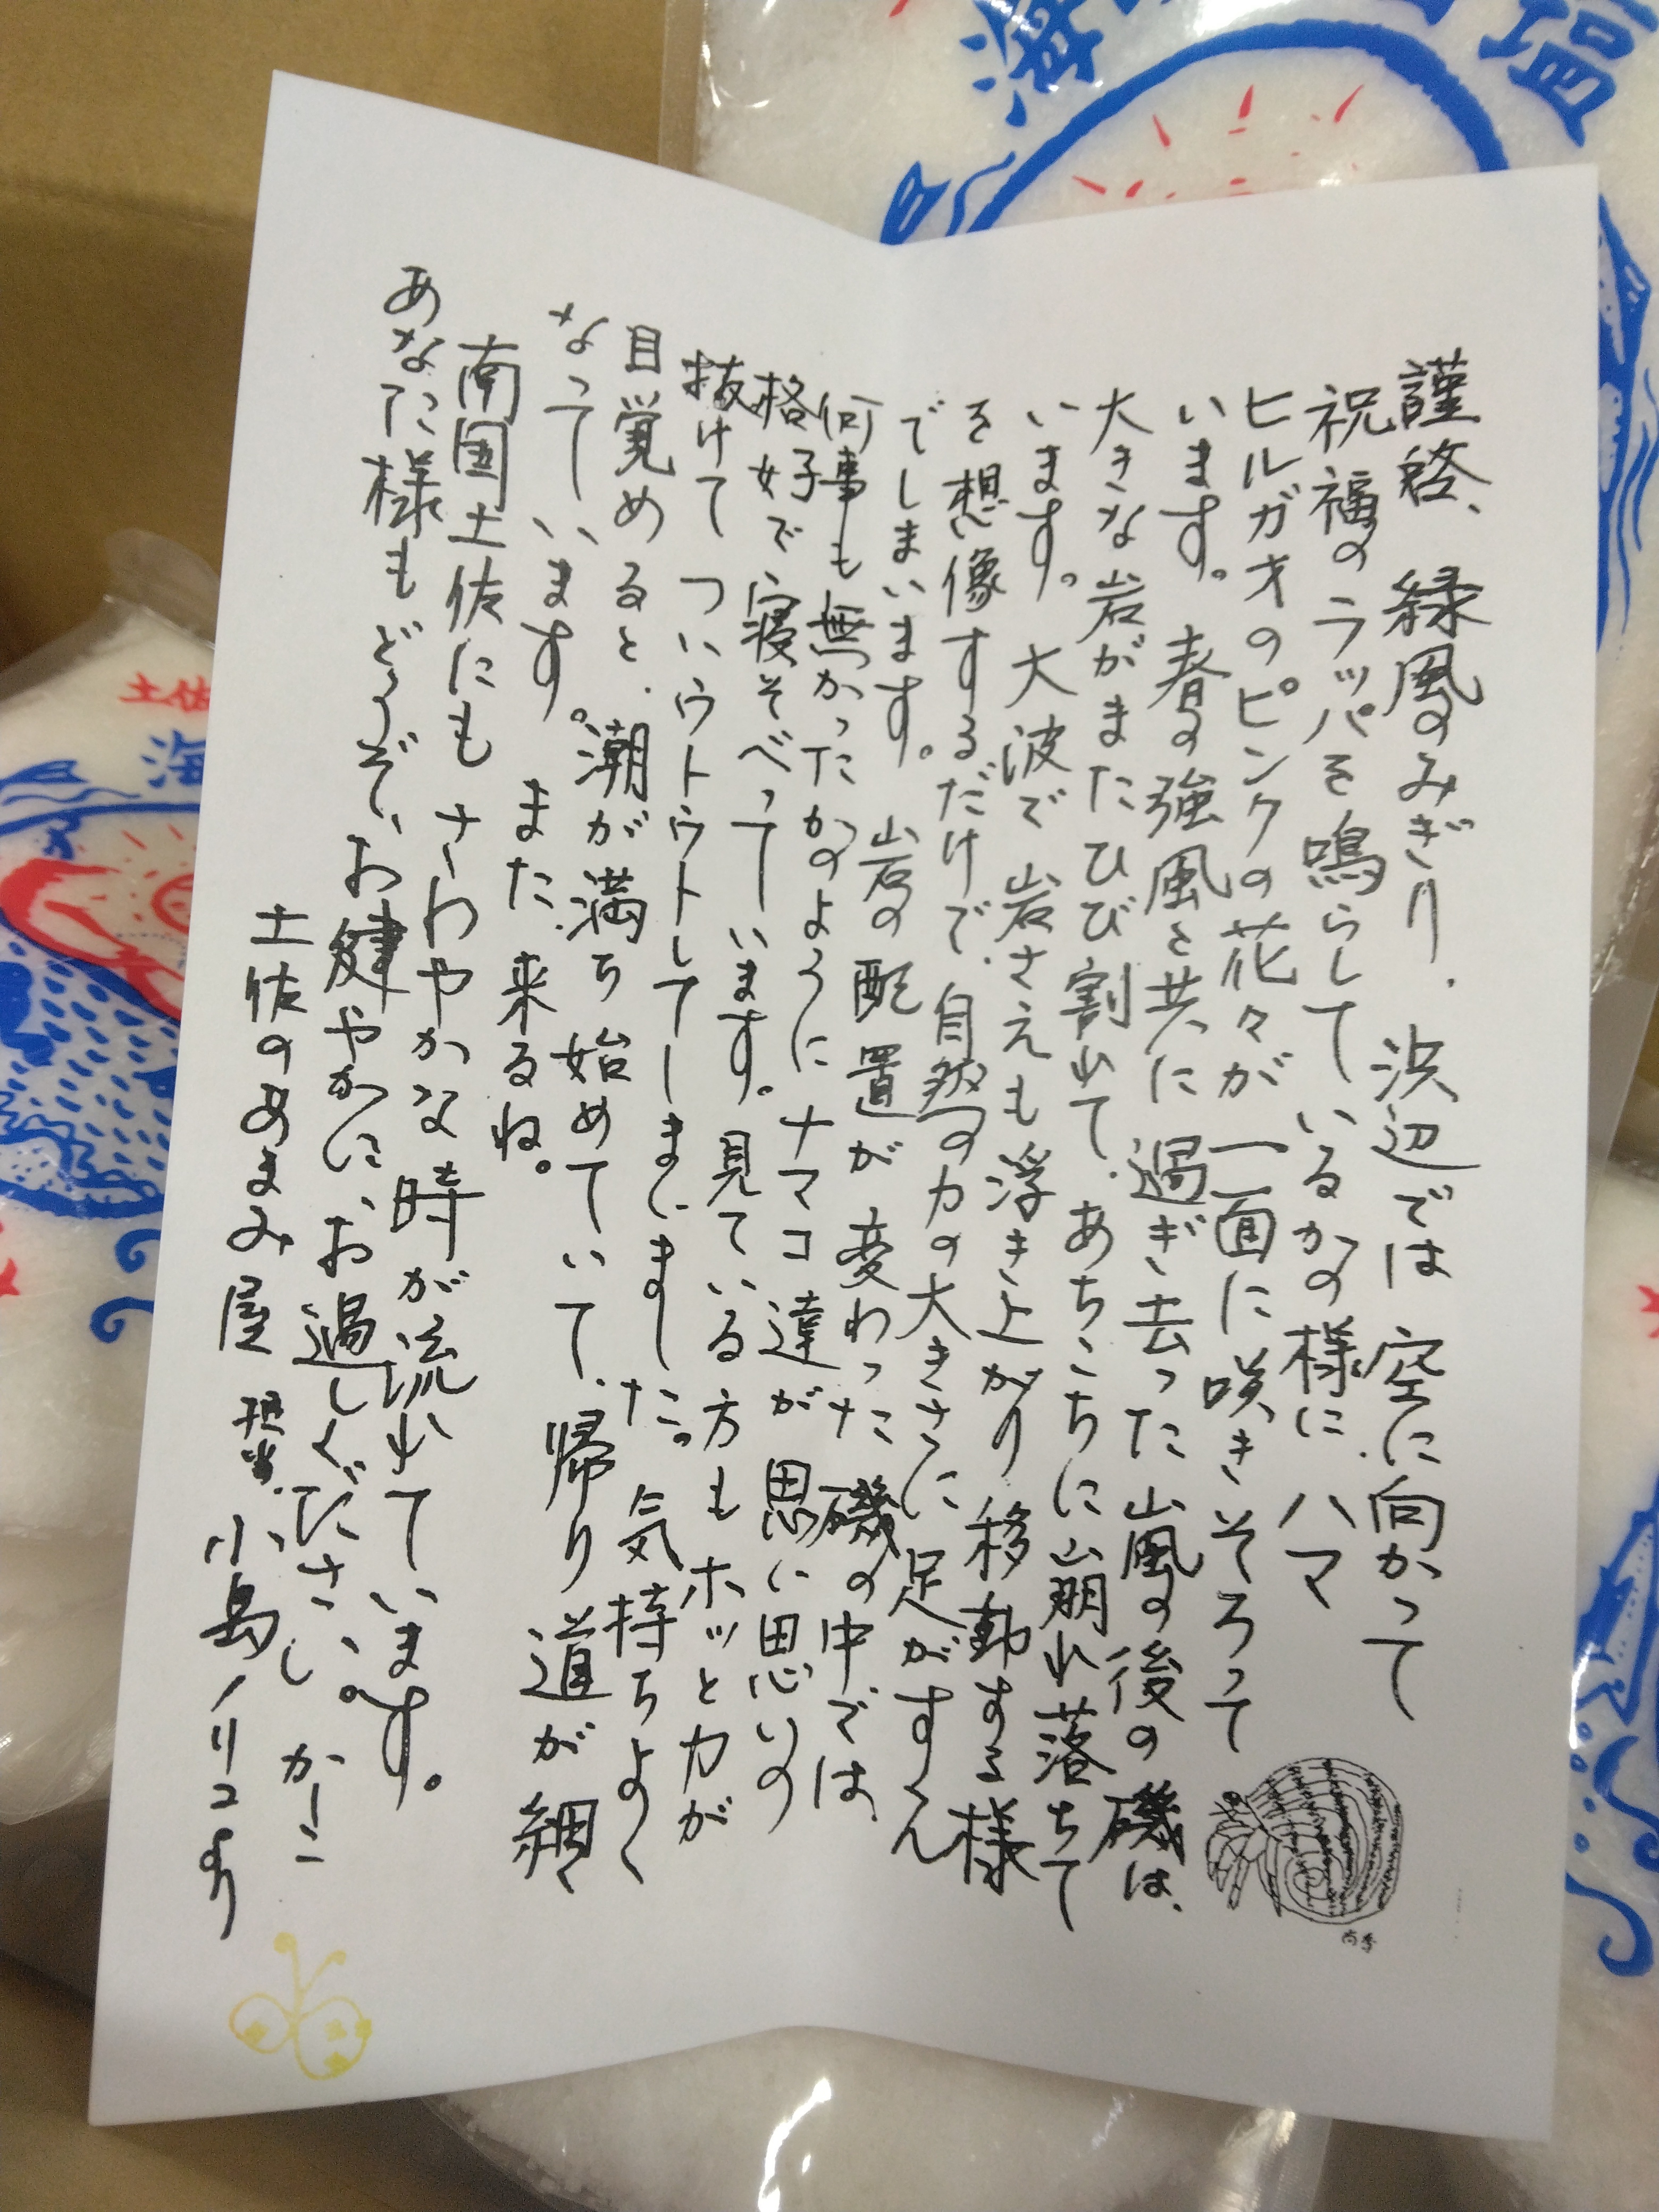 謹啓、緑風のみぎり、浜辺では空に向かって
祝福のラッパを鳴らしているかの様に、ハマ
ヒルガオのピンクの花々が一面に咲きそろって
います。春の強風と共に過ぎ去った嵐の後の磯は、
大きな岩がまたひび割れて、あちこちに崩れ落ちて
います。大波で岩さえも浮き上がり移動する様
を想像するだけで、自然の力の大きさに足がすくん
でしまいます。岩の配置が変わった磯の中では、
何事も無かったかのように ナマコ達が思い思いの
格好で寝そべっています。見ている方もホッと力が
抜けて ついウトウトしてしまいました。気持ちよく
目覚めると、潮が満ち始めていて、帰り道が細く
なっています。また来るね。
南国土佐にも さわやかな時が流れています。
あなた様もどうぞ、お健やかに、お過しください。かしこ
土佐のあまみ屋 担当、小島ノリコより
海
塩
土佐
海